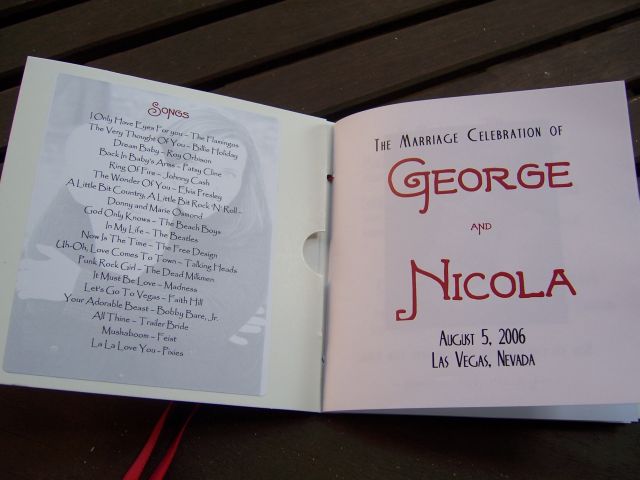 Songs
I Only Have Eyes For you - The Flamingos
The Very Thought Of You - Billie Holiday
Dream Baby - Roy Orbison
Back In Baby's Arms - Patsy Cline
Ring Of Fire - Johnny Cash
The Wonder Of You - Elvis Presley
A Little Bit Country, A Little Bit Rock 'N' Roll -
Donny and Marie Osmond
God Only Knows - The Beach Boys
In My Life - The Beatles
Now Is The Time - The Free Design
Uh-Oh, Love Comes To Town - Talking Heads
Punk Rock Girl - The Dead Milkmen
It Must Be Love - Madness
Let's Go To Vegas - Faith Hill
Your Adorable Beast - Bobby Bare, Jr.
All Thine - Trader Bride
Mushaboom - Feist
La La Love You - Pixies
The Marriage Celebration of
George
and
Nicola
August 5, 2006
Las Vegas, Nevada